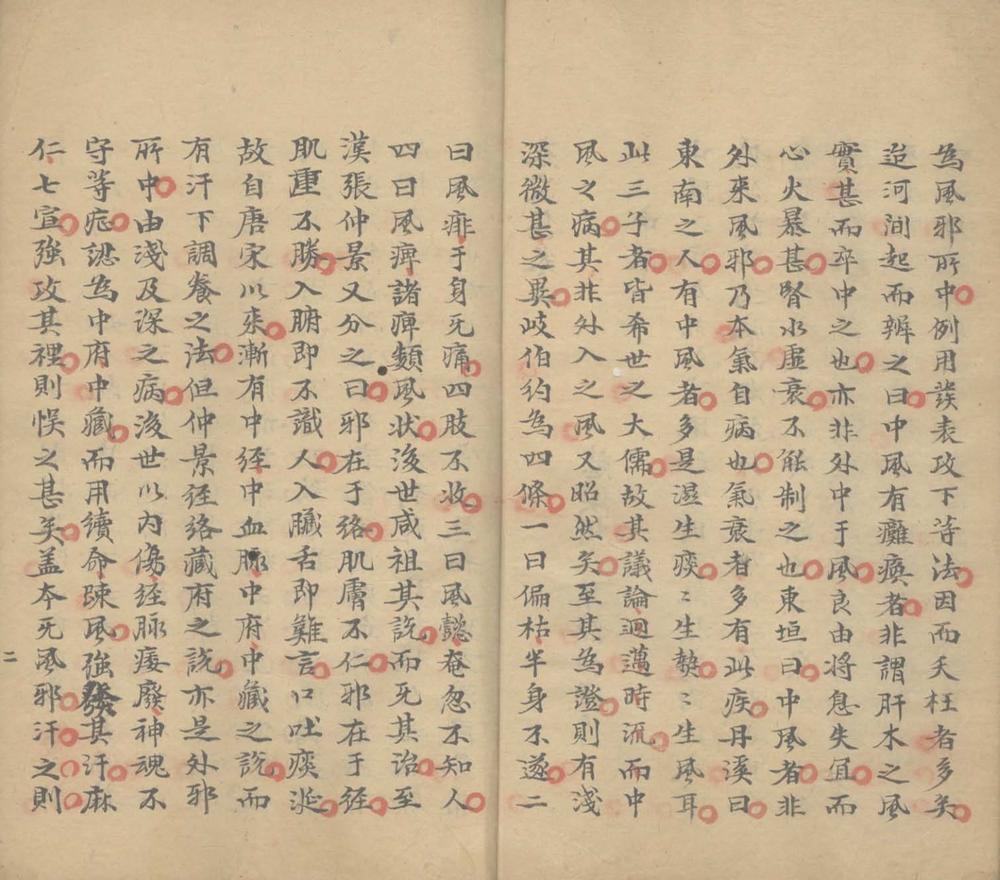 為風邪所中例用發表攻下等法因而夭枉者多矣
迨河澗起而辨之曰中風有癱瘓者非謂肝木之風
實甚而卒中之也亦非外中于風良由將息失宜而
心火暴甚腎水虛衰不能制之也東垣曰中風者非
外來風邪乃本氣自病也氣衰者多有此疾丹溪曰
東南之人有中風者多是濕生痰〻生熱〻生風耳
此三子者皆希世之大儒故其議論迥邁時流而中
風之病其非外入之風又昭然矣至其為證則有淺
深微甚之異岐伯約為四條一曰偏枯半身不遂二
曰風痱于身無痛四肢不收三曰風懿奄忽不知人
四曰風痺諸痺類風狀後世咸祖其說而无其治至
漢張仲景又分之曰邪在于絡肌膚不仁邪在于経
肌重不勝入腑即不識人入臟舌即難言口吐痰涎
故自唐宋以來漸有中経中血脉中府中藏之說而
有汗下調養之法但仲景経絡藏府之說亦是外邪
所中由淺及深之病後世以内傷経脉痿廢神魂不
守等症認為中府中藏而用續命疎風強發其汗麻
仁七宣強攻其裡則悞之甚矣盖本无風邪汗之則
二